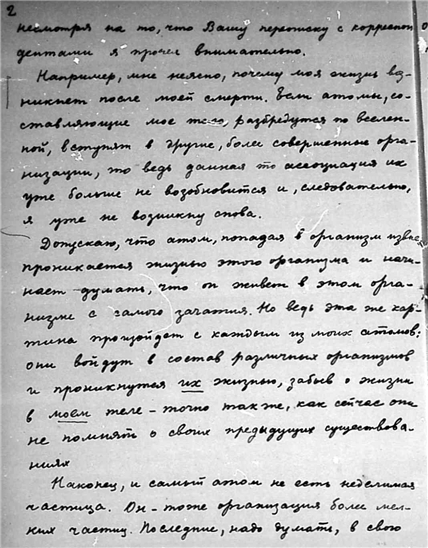 2
несмотря на то, что Вашу переписку с корреспон
дентами я прочел внимательно.
Например, мне неясно, почему моя жизнь воз-
никнет после моей смерти. Если атомы, со-
ставляющие мое тело, разбредутся по вселен-
ной, вступят в другие, более совершенные орга-
низации, то ведь данная то ассоциация их
уже больше не возобновится и, следовательно,
я уже не возникну снова.
Допускаю, что атом, попадая в организм извне
проникается жизнью этого организма и начи-
нает думать, что он живет в этом орга-
низме с самого зачатия. Но ведь эта же кар-
тина произойдет с каждым из моих атомов:
они войдут в состав различных организмов
и проникнутся их жизнью, забыв о жизни
в моем теле – точно так же, как сейчас они
не помнят о своих предыдущих существова-
ниях
Наконец, и самый атом не есть неделимая
частица. Он – тоже организация более мел-
ких частиц. Последние, надо думать, в свою